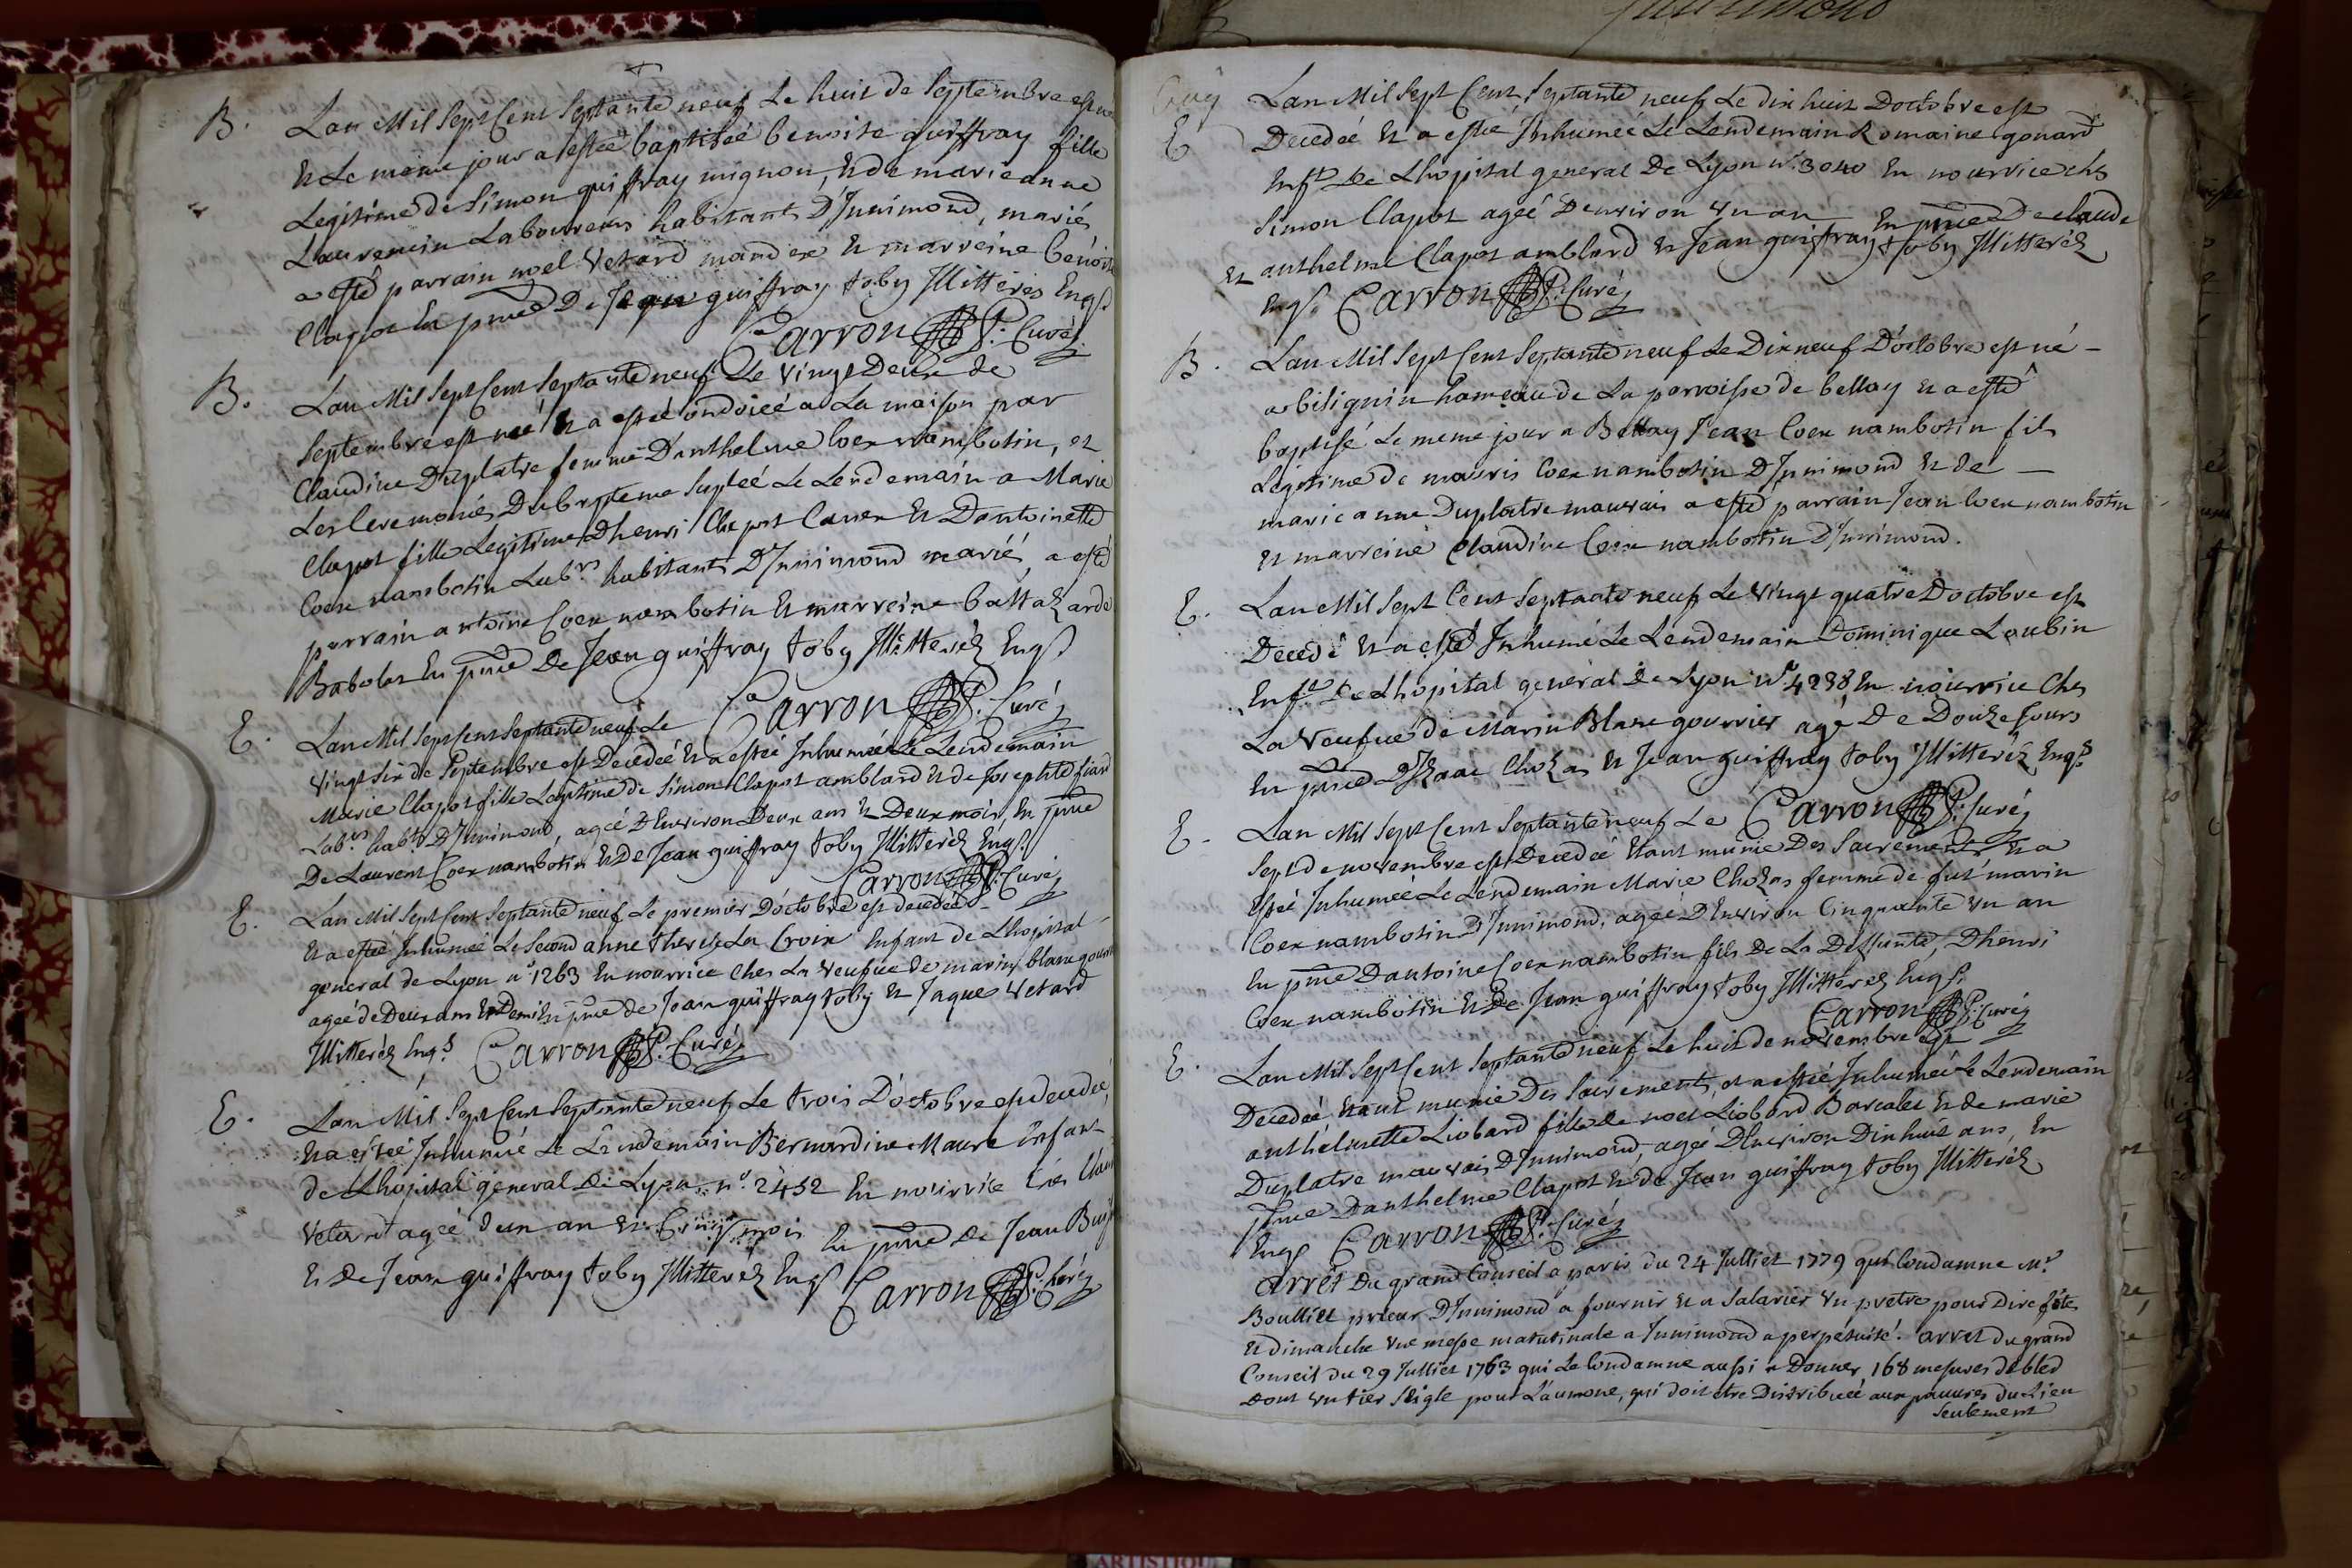 B. Lan Mil Sept Cent Septante neuf Le huit de Septembre est née
Et Le meme jour a estée baptisée benoite guiffray fille
Legitime de Simon guiffray mignon, Et de marie anne
Laurencin Laboureurs habitants D'Innimond, mariés
a esté parrain noel Vetard mandere Et marreine benoite
Clapot En pnce De Jean guiffray toby Illitterés Engs
Carron P. Curé
B. Lan Mil Sept Cent Septante neuf Le Vingt Deux de
Septembre est née Et a estée ondoiée a La maison par
Claudine Duplatre femme Danthelme Coex nambotin, et
Les Ceremonies Du bapteme supleé Le Lendemain a Marie
Clapot fille Legitime Dhenri Clapot Caner Et Dantoinette
Coex nambotin Labrs habitants D'Innimond mariés, a esté
parrain antoine Coex nambotin Et marreine baltazarde
Babolat En pnce De Jean guiffray toby Illitteréz Engs
Carron P. Curé
E. Lan Mil Sept Cent Septante neuf Le
Vingt Six de Septembre est Decedeé Et a estée Inhumée Le Lendemain
Marie Clapot fille Legitime de Simon Clapot amblard Et de Josephte fiard
Labrs habts D'Innimond, agée D'Environ Deux ans Et Deux mois, En pnce
De Laurent Coex nambotin Et De Jean guiffray toby Illitteréz Engs.
Carron P. Curé
E. Lan Mil Sept Cent Septante neuf Le premier D'octobre est decedée
Et a estée Inhumée Le Second anne therese La Croix Enfant de Lhopital
general de Lyon n° 1263 En nourrice Ches La Veufve de marin blanc gourrier
agée de Deux ans Et Demi En pnce de Jean guiffray toby Et Jaque Vetard
Illitteréz Engs. Carron P. Curé
E. Lan Mil Sept Cent Septante neuf Le trois D'octobre est decedée,
Et a estée Inhumée Le Lendemain Bernardine Maure Enfant
de Lhopital general De Lyon n°. 2452 En nourrice Ches
Vetard agée d'un an Et Cinq mois En pnce de Jean
Et De Jean guiffray toby Illitterez Engs Carron P. Curé
E Lan Mil Sept Cent Septante neuf Le Dix huit Doctobre est
Decedeé Et a estee Inhumeé Le Lendemain Romaine gonard
Enft De Lhopital general De Lyon n° 3040 En nourrice ches
Simon Clapot ageé Denviron Vn an En pnce De claude
Et anthelme Clapot amblard Et Jean guiffray toby Illitteréz
Engs. Carron P. Curé
B. Lan Mil Sept Cent Septante neuf Le Dix neuf D'octobre est né -
a bilignin hameau de La parroisse de bellay Et a esté
baptisé Le meme jour a Bellay Jean Coex nambotin fils
Légitime de mauris Coex nambotin D'Innimond Et de -
marie anne Duplatre mauvais a esté parrain Jean Coex nambotin
Et marreine Claudine Coex nambotin D'Innimond.
E. Lan Mil Sept Cent Septante neuf Le Vingt quatre Doctobre est
Decedé Et a esté Inhumé Le Lendemain Dominique Loubin
Enft De Lhopital general De Lyon n° 4238 En nourrice Ches
La Veufve de Marin Blanc gourrier agé De Douze Jours
En pnce D'Izaac Chozas Et Jean guiffray toby Illitteréz Engs
Carron P. Curé
E. Lan Mil Sept Cent Septante neuf Le
Sept de novembre est Decedeé Etant munie Des Sacrements Et a
Estée Inhumée Le Lendemain Marie Chozas femme de fut marin
Coex nambotin D'Innimond, ageé D'Environ Cinquante Vn an
En pnce Dantoine Coex nambotin fils De La Deffunte, Dhenri
Coex nambotin Et De Jean guiffray toby Illitteréz Engs.
Carron P. Curé
E. Lan Mil Sept Cent Septante neuf Le huit de novembre est
Decedeé Etant munie Des Sacrements, et a estée Inhumée Le Lendemain
anthelmette Liobard fille de noel Liobard Barcalet Et de marie
Duplatre mauvais D'Innimond, ageé D'Environ Dix huit ans, En
pnce Danthelme Clapot Et de Jean guiffray toby Illitteréz
Engs Carron P. Curé
arrêt Du grand Conseil a paris du 24 Julliet 1779 qui Condamne Mr.
Boulliet prieur D'Innimond a fournir Et a Salarier Vn pretre pour Dire fêtes
Et dimanche Vne messe matutinale a Innimond a perpetuité. arret du grand
Conseil du 29 Julliet 1763 qui Le Condamne aussi a Donner 168 mesures de bled
Dont Vn tier Seigle pour L'aumone, qui doit être Distribuée aux pauvres Du Lieu
Seulement